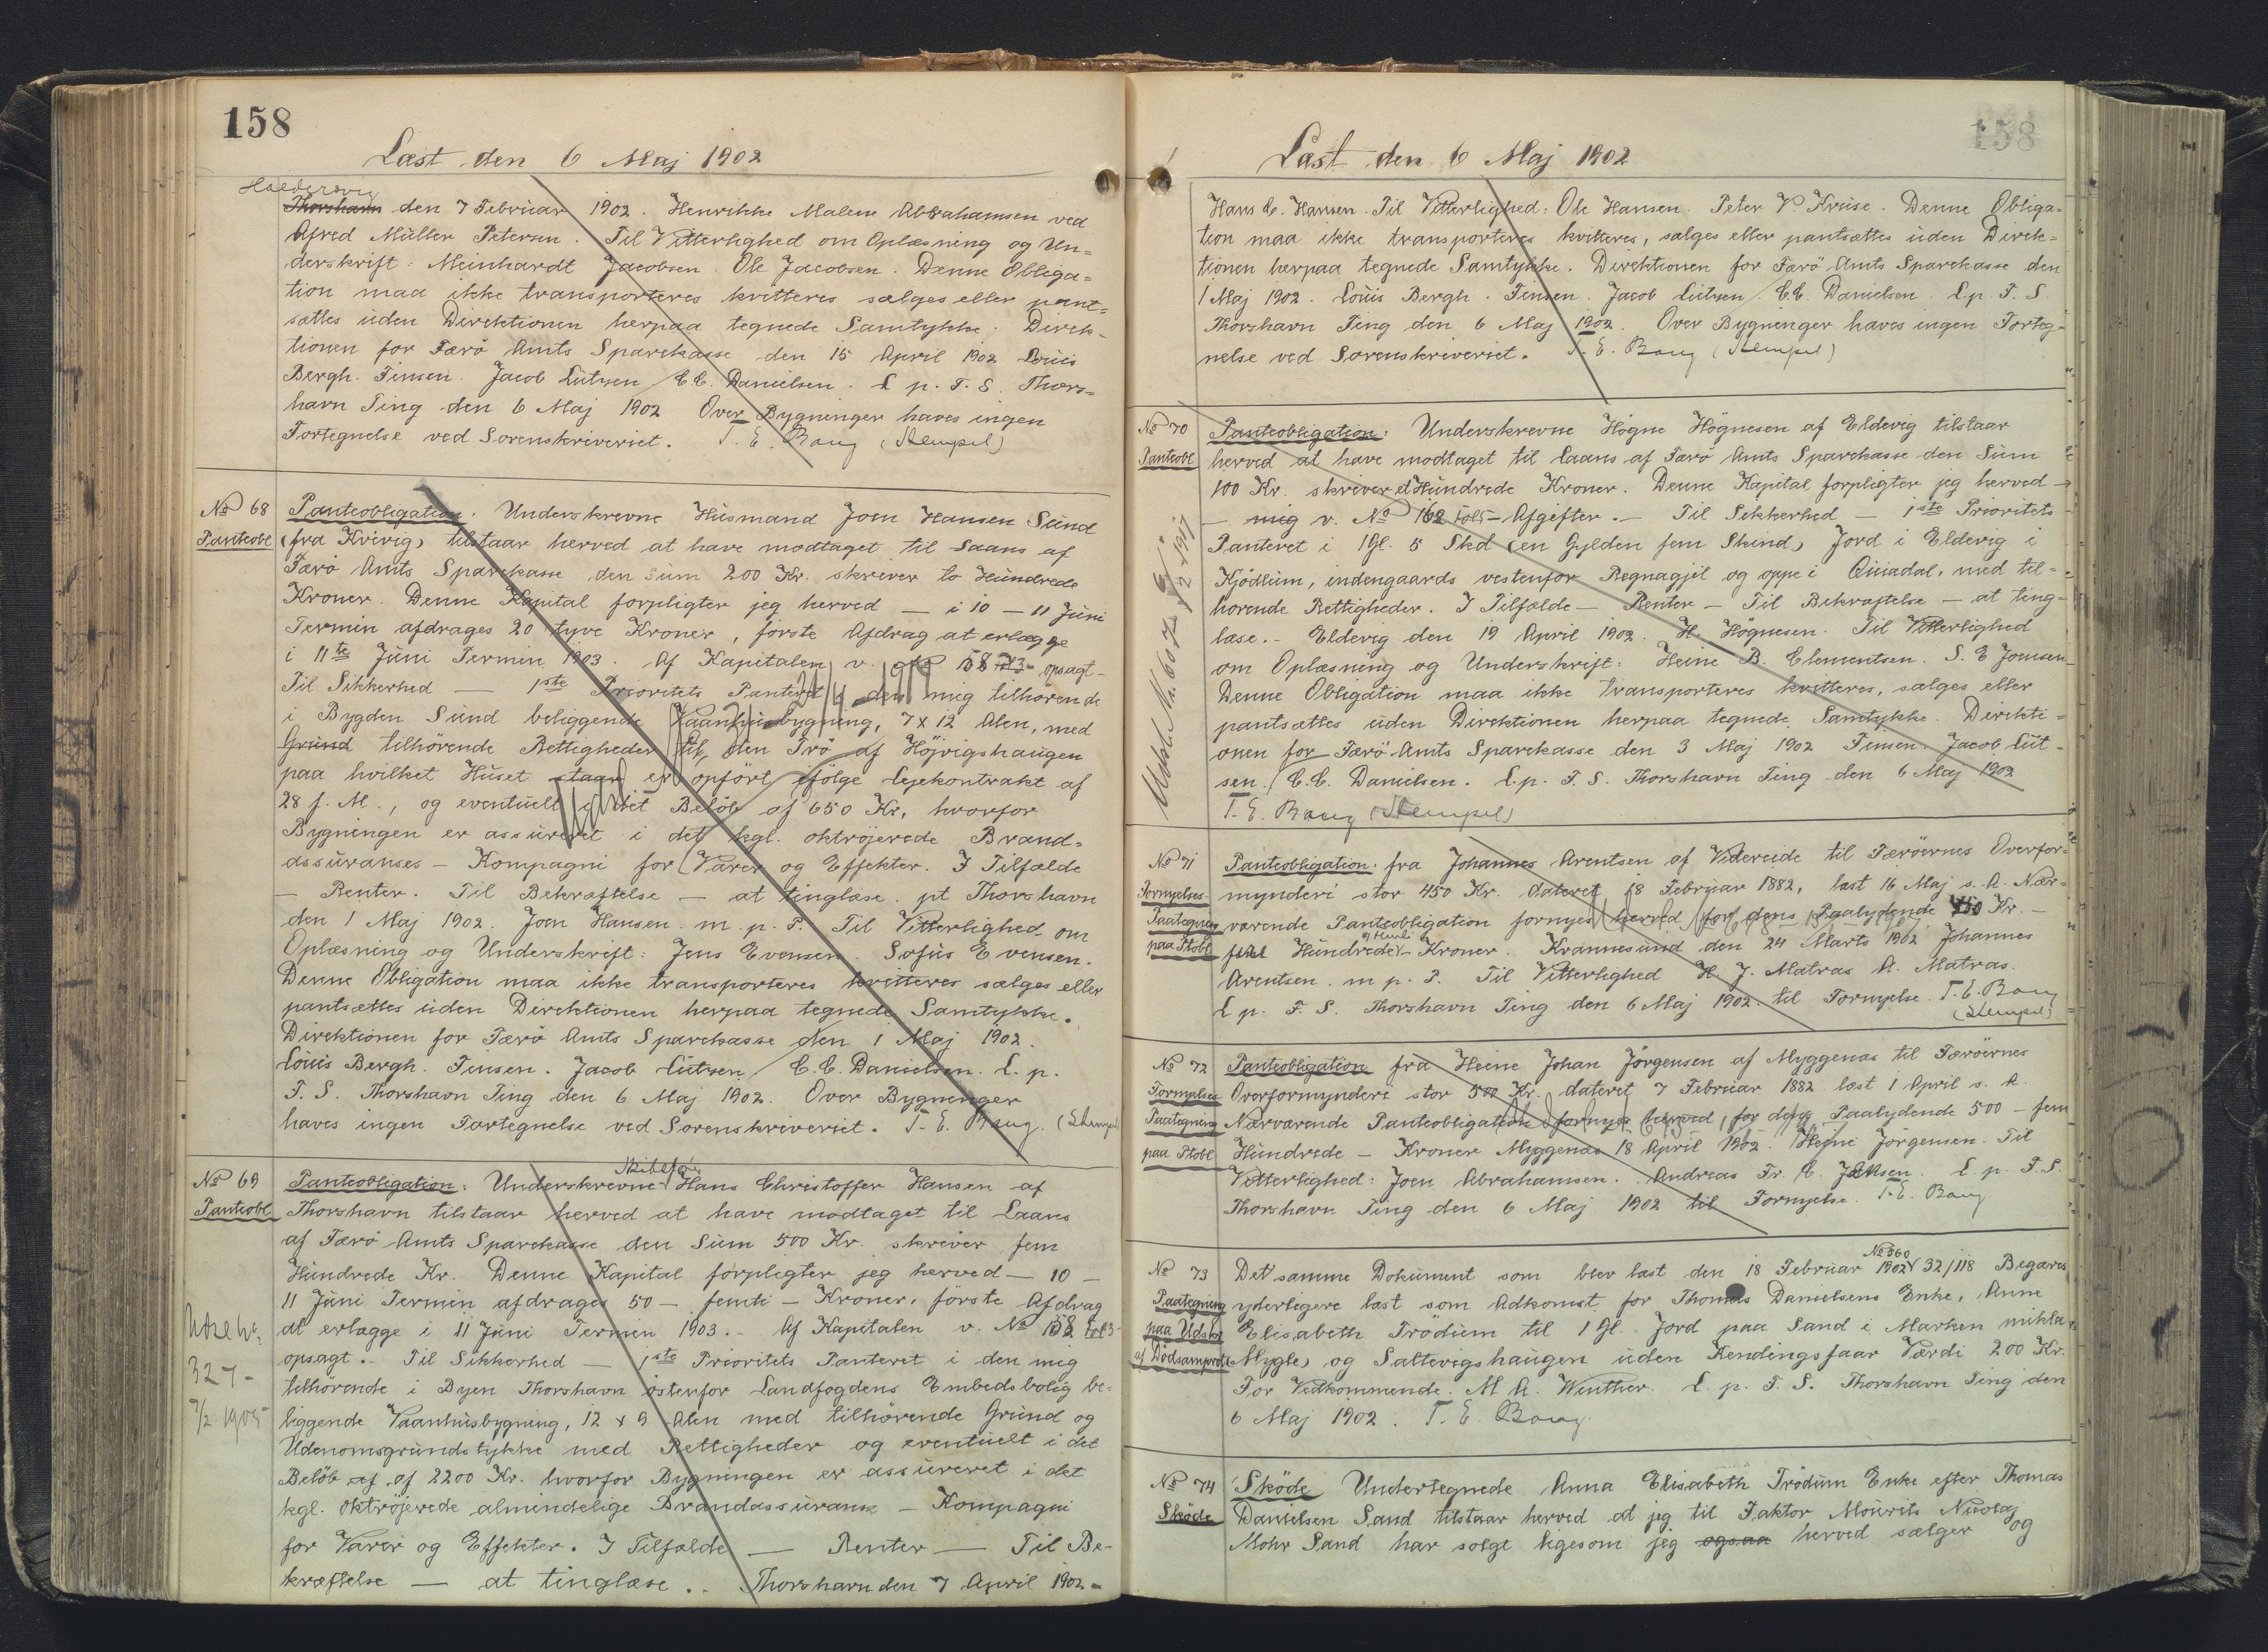 158
Læst den 6 Maj 1902
Haldersvig
Thorshavn den 7 Februar 1902. Henrikke Malene Abrahamsen ved
Alfred Müller Petersen. Til Vitterlighed om Oplæsning og Un-
derskrift: Meinhardt Jacobsen. Ole Jacobsen. Denne Obliga-
tion maa ikke transporteres kvitteres sælges eller pant-
sættes uden Direktionen herpaa tegnede Samtykke. Direk-
tionen for Færö Amts Sparekasse den 15 April 1902 Louis
Bergh. Finsen. Jacob Lützen / C.C. Danielsen. L p. F. S. Thors-
havn Ting den 6 Maj 1902 Over Bygninger haves ingen
Fortegnelse ved Sorenskriveriet. T. E. Bang (Stempel)
No 68
Panteobl
Panteobligation: Underskrevne Husmand Joen Hansen Sund
(fra Kvivig) tilstaar herved at have modtaget til Laans af
Færö Amts Sparekasse den Sum 200 Kr. skriver to Hundrede
Kroner. Denne Kapital forpligter jeg herved — i 10 — 11 Juni
Termin afdrages 20 tyve Kroner, förste Afdrag at erlægge
i 11te Juni Termin 1903. Af Kapitalen v. opsagt -
Til Sikkerhed — 1ste Prioritets Panteret i den mig tilhörende
i Bygden Sund beliggende Vaanhusbygning, 7 x 12 Alen, med
Grund tilhörende Rettigheder til den Trö af Höjvigshaugen
paa hvilket Huset staar er opfört ifölge Lejekontrakt af
28 f. M., og eventuelt i det Belöb af 650 Kr, hvorfor
Bygningen er assureret i det kgl. oktrojerede Brand-
assurances - Kompagni for Varer og Effekter. I Tilfælde
— Renter. Til Bekræftelse — at tinglæse. pt Thorshavn
den 1 Maj 1902. Joen Hansen. m. p. P. Til Vitterlighed om
Oplæsning og Underskrift: Jens Evensen. Sofus Evensen.
Denne Obligation maa ikke transporteres kvitteres sælges eller
pantsættes uden Direktionen herpaa tegnede Samtykke.
Direktionen for Færö Amts Sparekasse den 1 Maj 1902.
Louis Bergh. Finsen. Jacob Lützen / C.C. Danielsen. L. p.
F. S. Thorshavn Ting den 6 Maj 1902. Over Bygninger
haves ingen Fortegnelse ved Sorenskriveriet. T. E. Bang. (Stempel)
No 69
Panteobl
Panteobligation: Underskrevne Hans Christoffer Hansen af
Thorshavn tilstaar herved at have modtaget til Laans
af Færö Amts Sparekasse den Sum 500 Kr. skriver fem
Hundrede Kr. Denne Kapital forpligter jeg herved — 10 —
11 Juni Termin afdrages 50 — femti — Kroner, förste Afdrag
at erlægge i 11 Juni Termin 1903. - Af Kapitalen v. No
opsagt. - Til Sikkerhed — 1ste Prioritets Panteret i den mig
tilhörende i Byen Thorshavn östenfor Landfogdens Embedsbolig be-
liggende Vaanhusbygning, 12 x 9 Alen med tilhörende Grund og
Udenomsgrundstykke med Rettigheder og eventuelt i det
Belöb af af 2200 Kr. hvorfor Bygningen er assureret i det
kgl. oktrojerede almindelige Brandassurance - Kompagni
for Varer og Effekter. I Tilfælde — Renter — Til Be-
kræftelse — at tinglæse. - Thorshavn den 7 April 1902 -
327 -
7/2 1905
158
Læst den 6 Maj 1902
Hans C. Hansen. Til Vitterlighed: Ole Hansen. Peter V. Kruse. Denne Obliga-
tion maa ikke transporteres kvitteres, sælges eller pantsættes uden Direk-
tionen herpaa tegnede Samtykke. Direktionen for Færö Amts Sparekasse den
1 Maj 1902. Louis Bergh. Finsen. Jacob Lützen / C.C. Danielsen L. p. F. S.
Thorshavn Ting den 6 Maj 1902. Over Bygninger haves ingen Forteg-
nelse ved Sorenskriveriet. T. E. Bang (Stempel)
No 70
Panteobl
Panteobligation: Underskrevne Högne Högnesen af Eldevig tilstaar
herved at have modtaget til Laans af Færö Amts Sparekasse den Sum
100 Kr. skriver et Hundrede Kroner. Denne Kapital forpligter jeg herved —
— mig v. No 162 - Afgifter. — Til Sikkerhed — 1ste Prioritets
Panteret i 1 Gl. 5 Skd (en Gylden fem Skind) Jord i Eldevig i
Kjödlum, indengaards vestenfor Regnagjil og oppe i Quiadal, med til-
hörende Rettigheder. I Tilfælde — Renter — Til Bekræftelse — at ting-
læse. - Eldevig den 19 April 1902. H. Högnesen. Til Vitterlighed
om Oplæsning og Underskrift: Heine B. Clementsen. S. E Joensen
Denne Obligation maa ikke transporteres kvitteres, sælges eller
pantsættes uden Direktionen herpaa tegnede Samtykke. Direkti-
onen for Færö Amts Sparekasse den 3 Maj 1902 Finsen. Jacob Lüt-
sen. / C.C. Danielsen. L. p. F. S. Thorshavn Ting den 6 Maj 1902
T. E. Bang (Stempel)
No 71
Fornyelses-
Paategning
paa Ptobl
Panteobligation: fra Johannes Arentsen af Videreide til Færöernes Overfor-
mynderi stor 450 Kr. dateret 18 Februar 1882, læst 16 Maj s. A. Nær-
værende Panteobligation fornyes herved for dens Paalydende 450 Kr. —
fire Hundrede - Kroner. Krannesund den 24 Marts 1902 Johannes
Arentsen. m p. P. Til Vitterlighed H. J. Matras A. Matras.
L p. F. S. Thorshavn Ting den 6 Maj 1902. til Fornyelse. T. E. Bang
(Stempel)
No 72
Fornyelses
Paategning
paa Ptobl
Panteobligation fra Heine Johan Jörgensen af Myggenæs til Færöernes
Overformynderi stor 500 Kr. dateret 7 Februar 1882 læst 1 April s. A.
Nærværende Panteobligation fornyes herved, for dens Paalydende 500 — fem
Hundrede — Kroner Myggenæs 18 April 1902. Heine Jörgensen. Til
Vitterlighed: Joen Abrahamsen. Andreas Fr. C. L. p. F. S.
Thorshavn Ting den 6 Maj 1902 til Fornyelse. T. E. Bang
No 73
Paategning
paa Udskr
af Dödsamprot
No 560
Det samme Dokument som blev læst den 18 Februar 1902 32/118 Begæres
yderligere læst som Adkomst for Thomas Danielsens Enke, Anne
Elisabeth Trödum til 1 Gl. Jord paa Sand i Marken mikla
Mygle) og Saltevigshaugen uden Kendingsfaar Værdi 200 Kr.
For Vedkommende. M. A. Winther. L. p. F. S. Thorshavn Ting den
6 Maj 1902. T. E. Bang.
No 74
Sköde
Sköde Undertegnede Anna Elisabeth Trödum Enke efter Thomas
Danielsen Sand tilstaar herved at jeg til Faktor Mourits Nicolaj
Mohr Sand har solgt ligesom jeg ogsaa herved sælger og